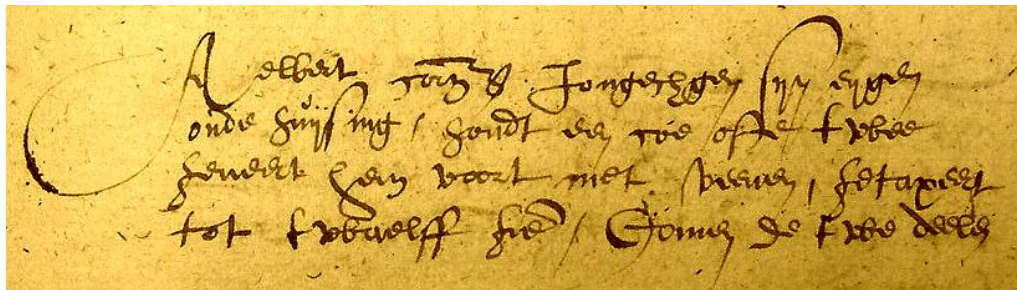 Aelbert corn̄z Jongerhgen sijn eygen
oude huijsing, houdt een coe ofte twee
geneert hem voort met veenen, getaxeert
tot twaelff gl Comen de twe deelen